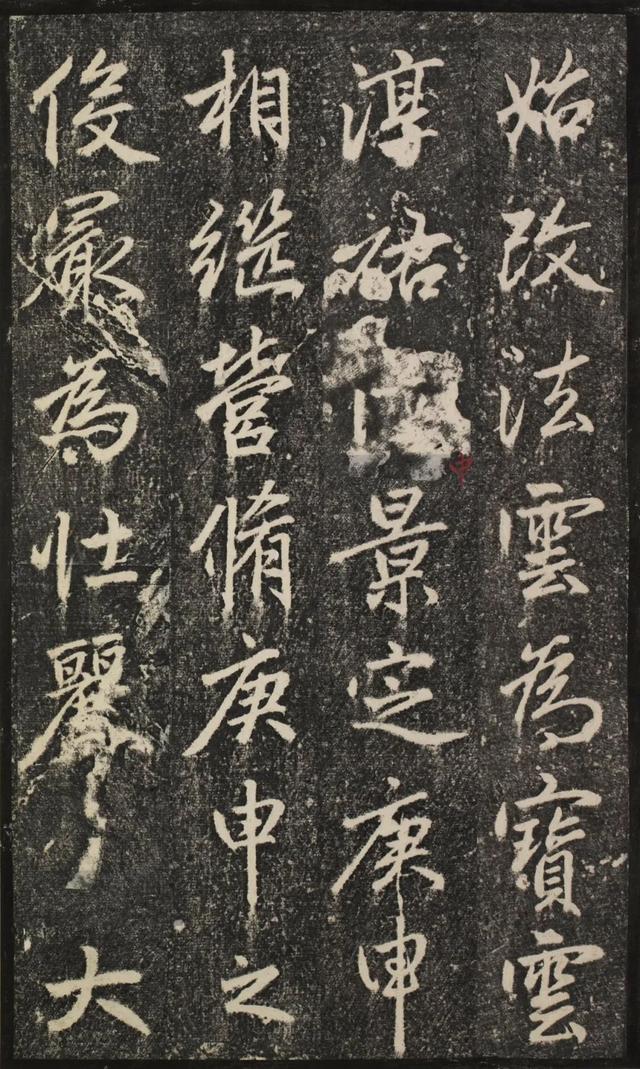 始改法雲為寶雲
淳祐景定庚申
相継營脩庚申之
後㝡為壮麗大